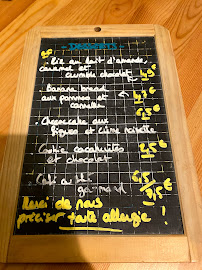 DESSERTS
Riz au lait d'amande,
caramel et
crumble chocolat 4,5€
. Banana bread
aux pommes et
cannelle 4,5€
. Cheesecake aux
figues et crème noisette
5,5€
. Cookie cacahuètes
et chocolat 2,5€
. Café ou thé
gourmand
Merci de nous
préciser toute allergie !